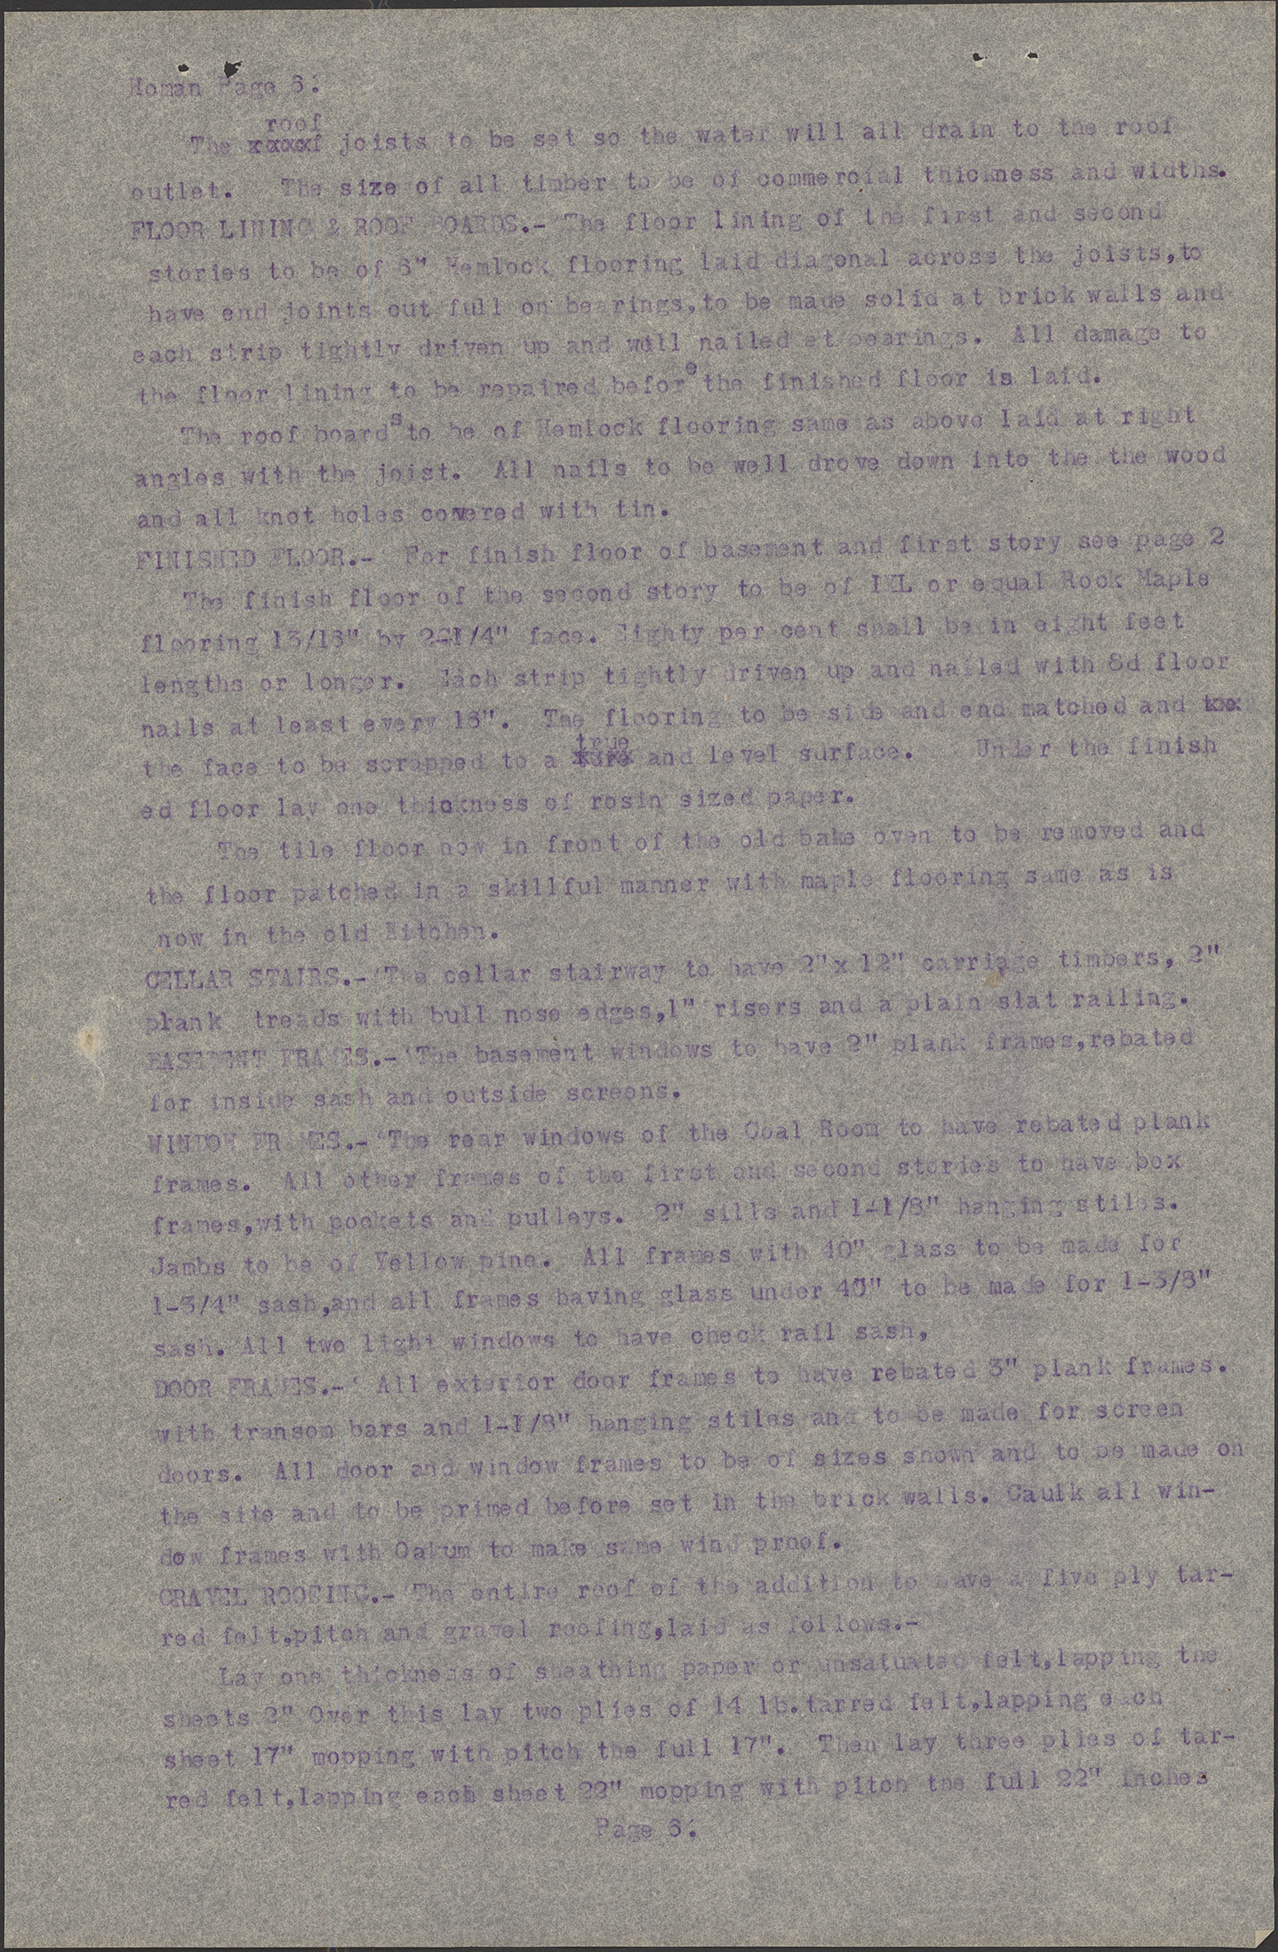 Homan Page 6.
roof
The xxxxf joists to be set so the water will all drain to the roof
outlet. The size of all timber to be of commercial thickness and widths.
FLOOR LINING & ROOF BOARDS.- The floor lining of the first and second
stories to be of 6" Hemlock flooring laid diagonal across the joists,to
have end joints cut full on bearings,to be made solid at brick walls and
each strip tightly driven up and well nailed at bearings. All damage to
the floor lining to be repaired before the finished floor is laid.
The roof boards to be of Hemlock flooring same as above laid at right
angles with the joist. All nails to be well drove down into the the wood
and all knot holes covered with tin.
FINISHED FLOOR.- For finish floor of basement and first story see page 2
The finish floor of the second story to be of IXL or equal Rock Maple
flooring 13/16" by 2-1/4" face. Eighty per cent shall be in eight feet
lengths or longer. Each strip tightly driven up and nailed with 8d floor
nails at least every 16". The flooring to be side and end matched and
true
the face to be scrapped to a and level surface. Under the finish
ed floor lay one thickness of rosin sized paper.
The tile floor now in front of the old bake oven to be removed and
the floor patched in a skillful manner with maple flooring same as is
now in the old Kitchen.
CELLAR STAIRS.- The cellar stairway to have 2"x 12" carriage timbers, 2"
plank treads with bull nose edges,1" risers and a plain slat railing.
BASEMENT FRAMES.- The basement windows to have 2" plank frames,rebated
for inside sash and outside screens.
WINDOW FRAMES.- The rear windows of the Coal Room to have rebated plank
frames. All other frames of the first and second stories to have box
frames,with pockets and pulleys. 2" sills and 1-1/8" hanging stiles.
Jambs to be of Yellow pine. All frames with 40" glass to be made for
1-3/4" sash,and all frames having glass under 40" to be made for 1-3/8"
sash. All two light windows to have check rail sash,
DOOR FRAMES.- All exterior door frames to have rebated 3" plank frames.
with transom bars and 1-1/8" hanging stiles and to be made for screen
doors. All door and window frames to be of sizes shown and to be made on
the site and to be primed before set in the brick walls. Caulk all win-
dow frames with Oakum to make same wind proof.
GRAVEL ROOFING.- The entire roof of the addition to have a five ply tar-
red felt,pitch and gravel roofing,laid as follows.-
Lay one thickness of sheathing paper or unsatuated felt,lapping the
sheets 2" Over this lay two plies of 14 lb.tarred felt,lapping each
sheet 17" mopping with pitch the full 17". Then lay three plies of tar-
red felt,lapping each sheet 22" mopping with pitch the full 22" inches
Page 6.